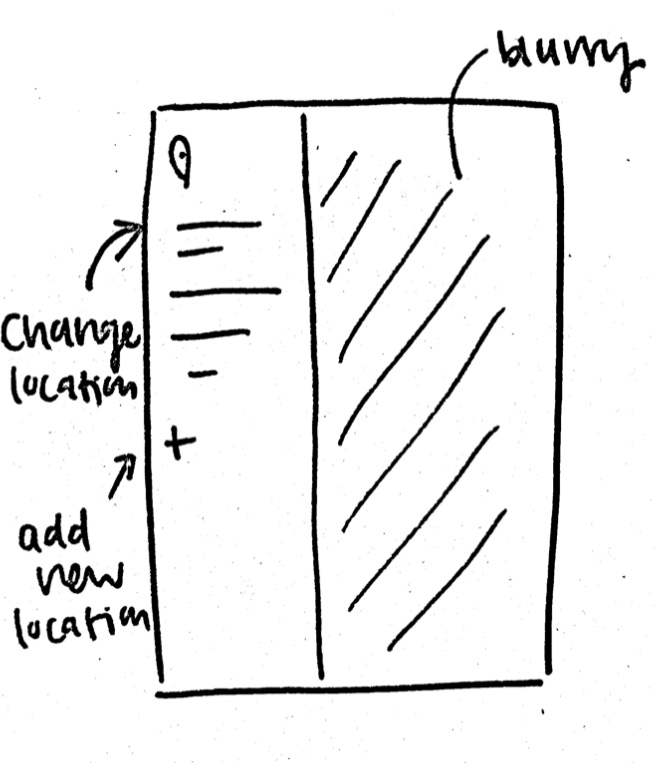 blurry
Change
location
+
add
new
location